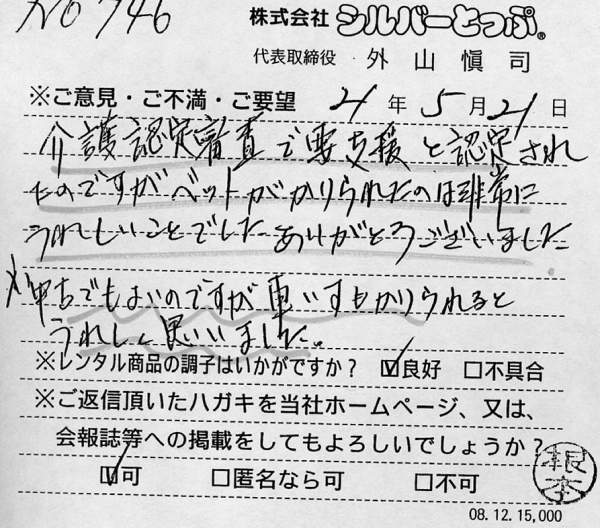 No 746
株式会社 シルバーとっぷ®
代表取締役 外山愼司
※ご意見・ご不満・ご要望 21年5月21日
介護認定審査で要支援と認定され
たのですがベットがかりられたのは非常に
うれしいことでした ありがとうございました
中古でもよいのですが車いすもかりられると
うれしく思いました。
※レンタル商品の調子はいかがですか? ☑良好 □不具合
※ご返信頂いたハガキを当社ホームページ、又は、
会報誌等への掲載をしてもよろしいでしょうか?
☑可 □匿名なら可 □不可
08.12.15,000